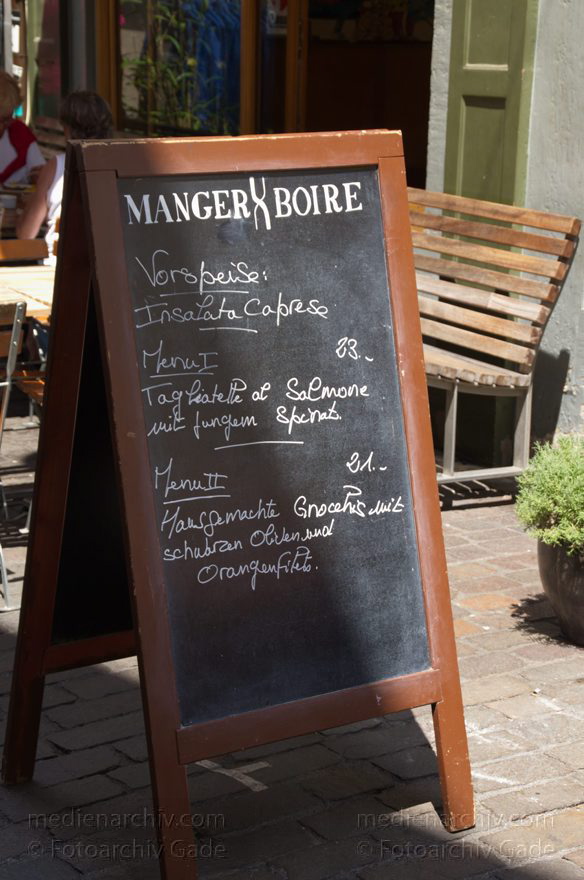 MANGER BOIRE
Vorspeise:
Insalata Caprese
Menu I 23.-
Tagliatelle al Salmone
mit jungem Spinat.
Menu II 21.-
Hausgemachte Gnocchis mit
schwarzen Oliven und
Orangenfilets.
medienarchiv.com medienarchiv.com
© Fotoarchiv Gade © Fotoarchiv Gade